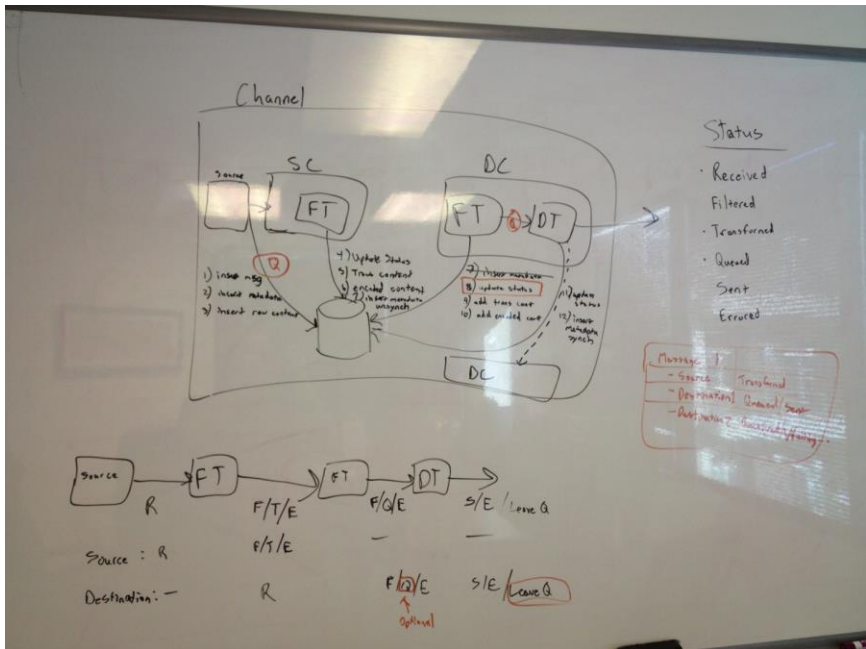 Channel
SC
DC
Source
FT
FT
Q
DT
Q
1) insert msg
2) insert metadata
3) insert raw content
4) Update Status
5) Trans content
6) encoded content
7) insert metadata
unsynch
7) insert metadata
8) update status
9) add trans cont
10) add encoded cont
11) update
status
12) insert
metadata
synch
DC
Status
· Received
Filtered
· Transformed
· Queued
Sent
Errored
Message 1
- Source Transformed
- Destination1 Queued/Sent
- Destination2
Source
FT
FT
DT
R
F/T/E
F/Q/E
S/E/Leave Q
Source : R
F/T/E
—
—
Destination: —
R
F/Q/E
S/E/Leave Q
Optional